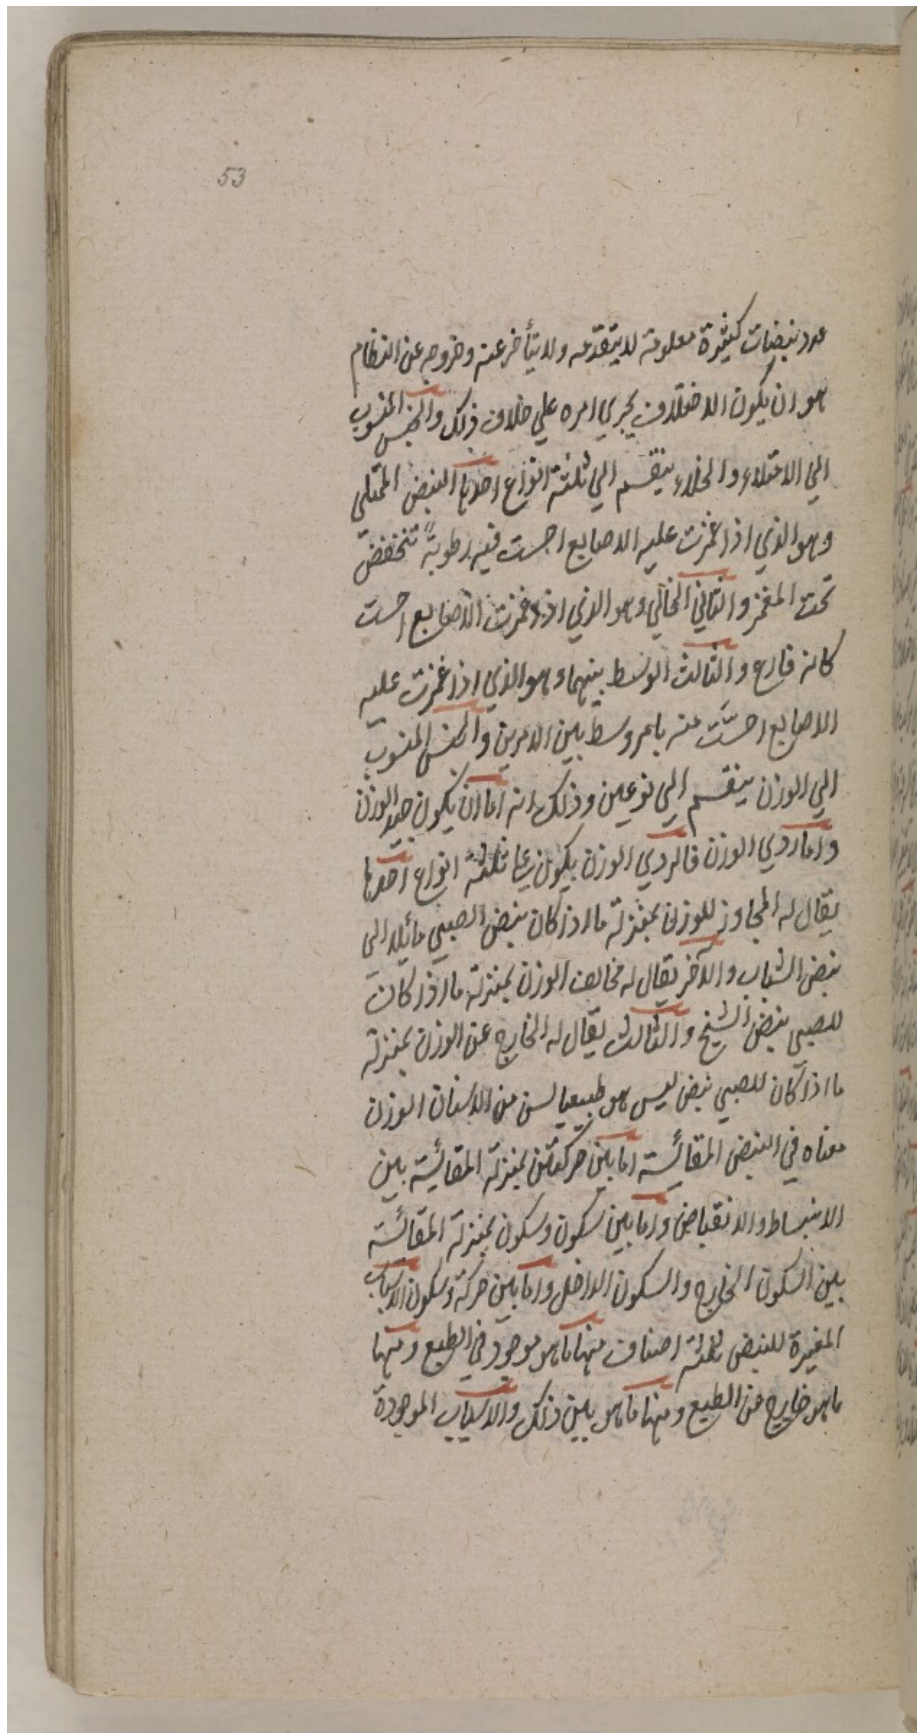 53
عدد نبضات كثيرة معلومة لا يتقدمه ولا يتأخر عنه وخروجه عن النظام
هو ان يكون الاختلاف يجري امره علي خلاف ذلك والجنس المنسوب
الي الامتلاء والخلاء ينقسم الي ثلثة انواع احدها النبض الممتلي
وهو الذي اذا غمزت عليه الاصابع احست فيه رطوبةً تنخفض
تحت المغمز والثاني الخالي وهو الذي اذا غمزت الاصابع احست
كانه فارع والثالث الوسط بينهما وهو الذي اذا غمزت عليه
الاصابع احسّت منه بامر وسط بين الامرين والجنس المنسوب
الي الوزن ينقسم الي نوعين وذلك انه اما ان يكون جيد الوزن
واما ردي الوزن فالردي الوزن يكون علي ثلثة انواع احدها
يقال له المجاوز للوزن بمنزلة ما اذا كان نبض الصبي مائلا الى
نبض الشباب والآخر يقال له مخالف الوزن بمنزلة ما اذا كان
للصبي نبض الشيخ والثالث يقال له الخارج عن الوزن بمنزلة
ما اذا كان للصبي نبض ليس هو طبيعيا لسن من الاسنان الوزن
معناه في النبض المقائسة اما بين حركتين بمنزلة المقائسة بين
الانبساط والانقباض واما بين سكون وسكون بمنزلة المقائسة
بين السكون الخارج والسكون الداخل واما بين حركة وسكون الاسباب
المغيرة للنبض ثلثة اصناف منها ما هو موجود في الطبع ومنها
ما هو خارج من الطبع ومنها ما هو بين ذلك والاسباب الموجودة